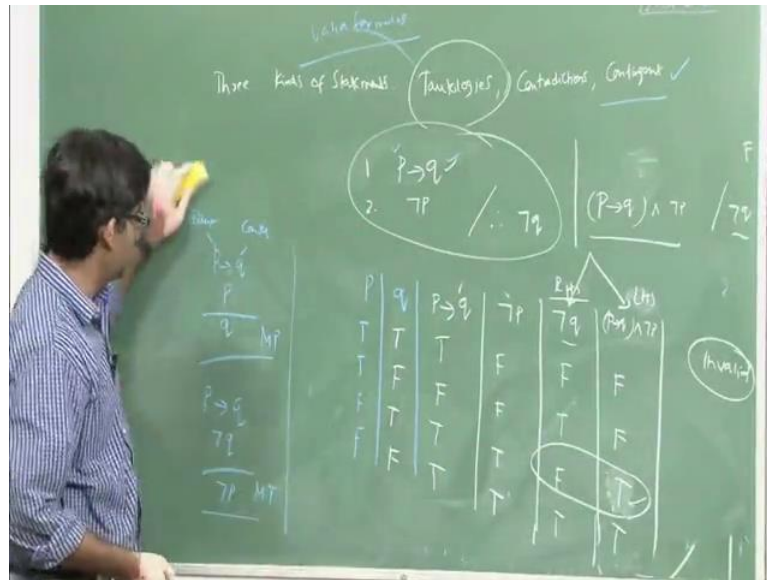 Three Kinds of Statements. Tautologies, Contradictions, Contingent ✓
1 P→q
2. ¬P / ∴ ¬q
(P→q) ∧ ¬P / ¬q
F
P→q
P
q MP
P→q
¬q
¬P MT
RHS LHS
P q P→q ¬P ¬q (P→q)∧¬P
T T T F F F
T F F F T F
F T T T F T
F F T T T T
Invalid